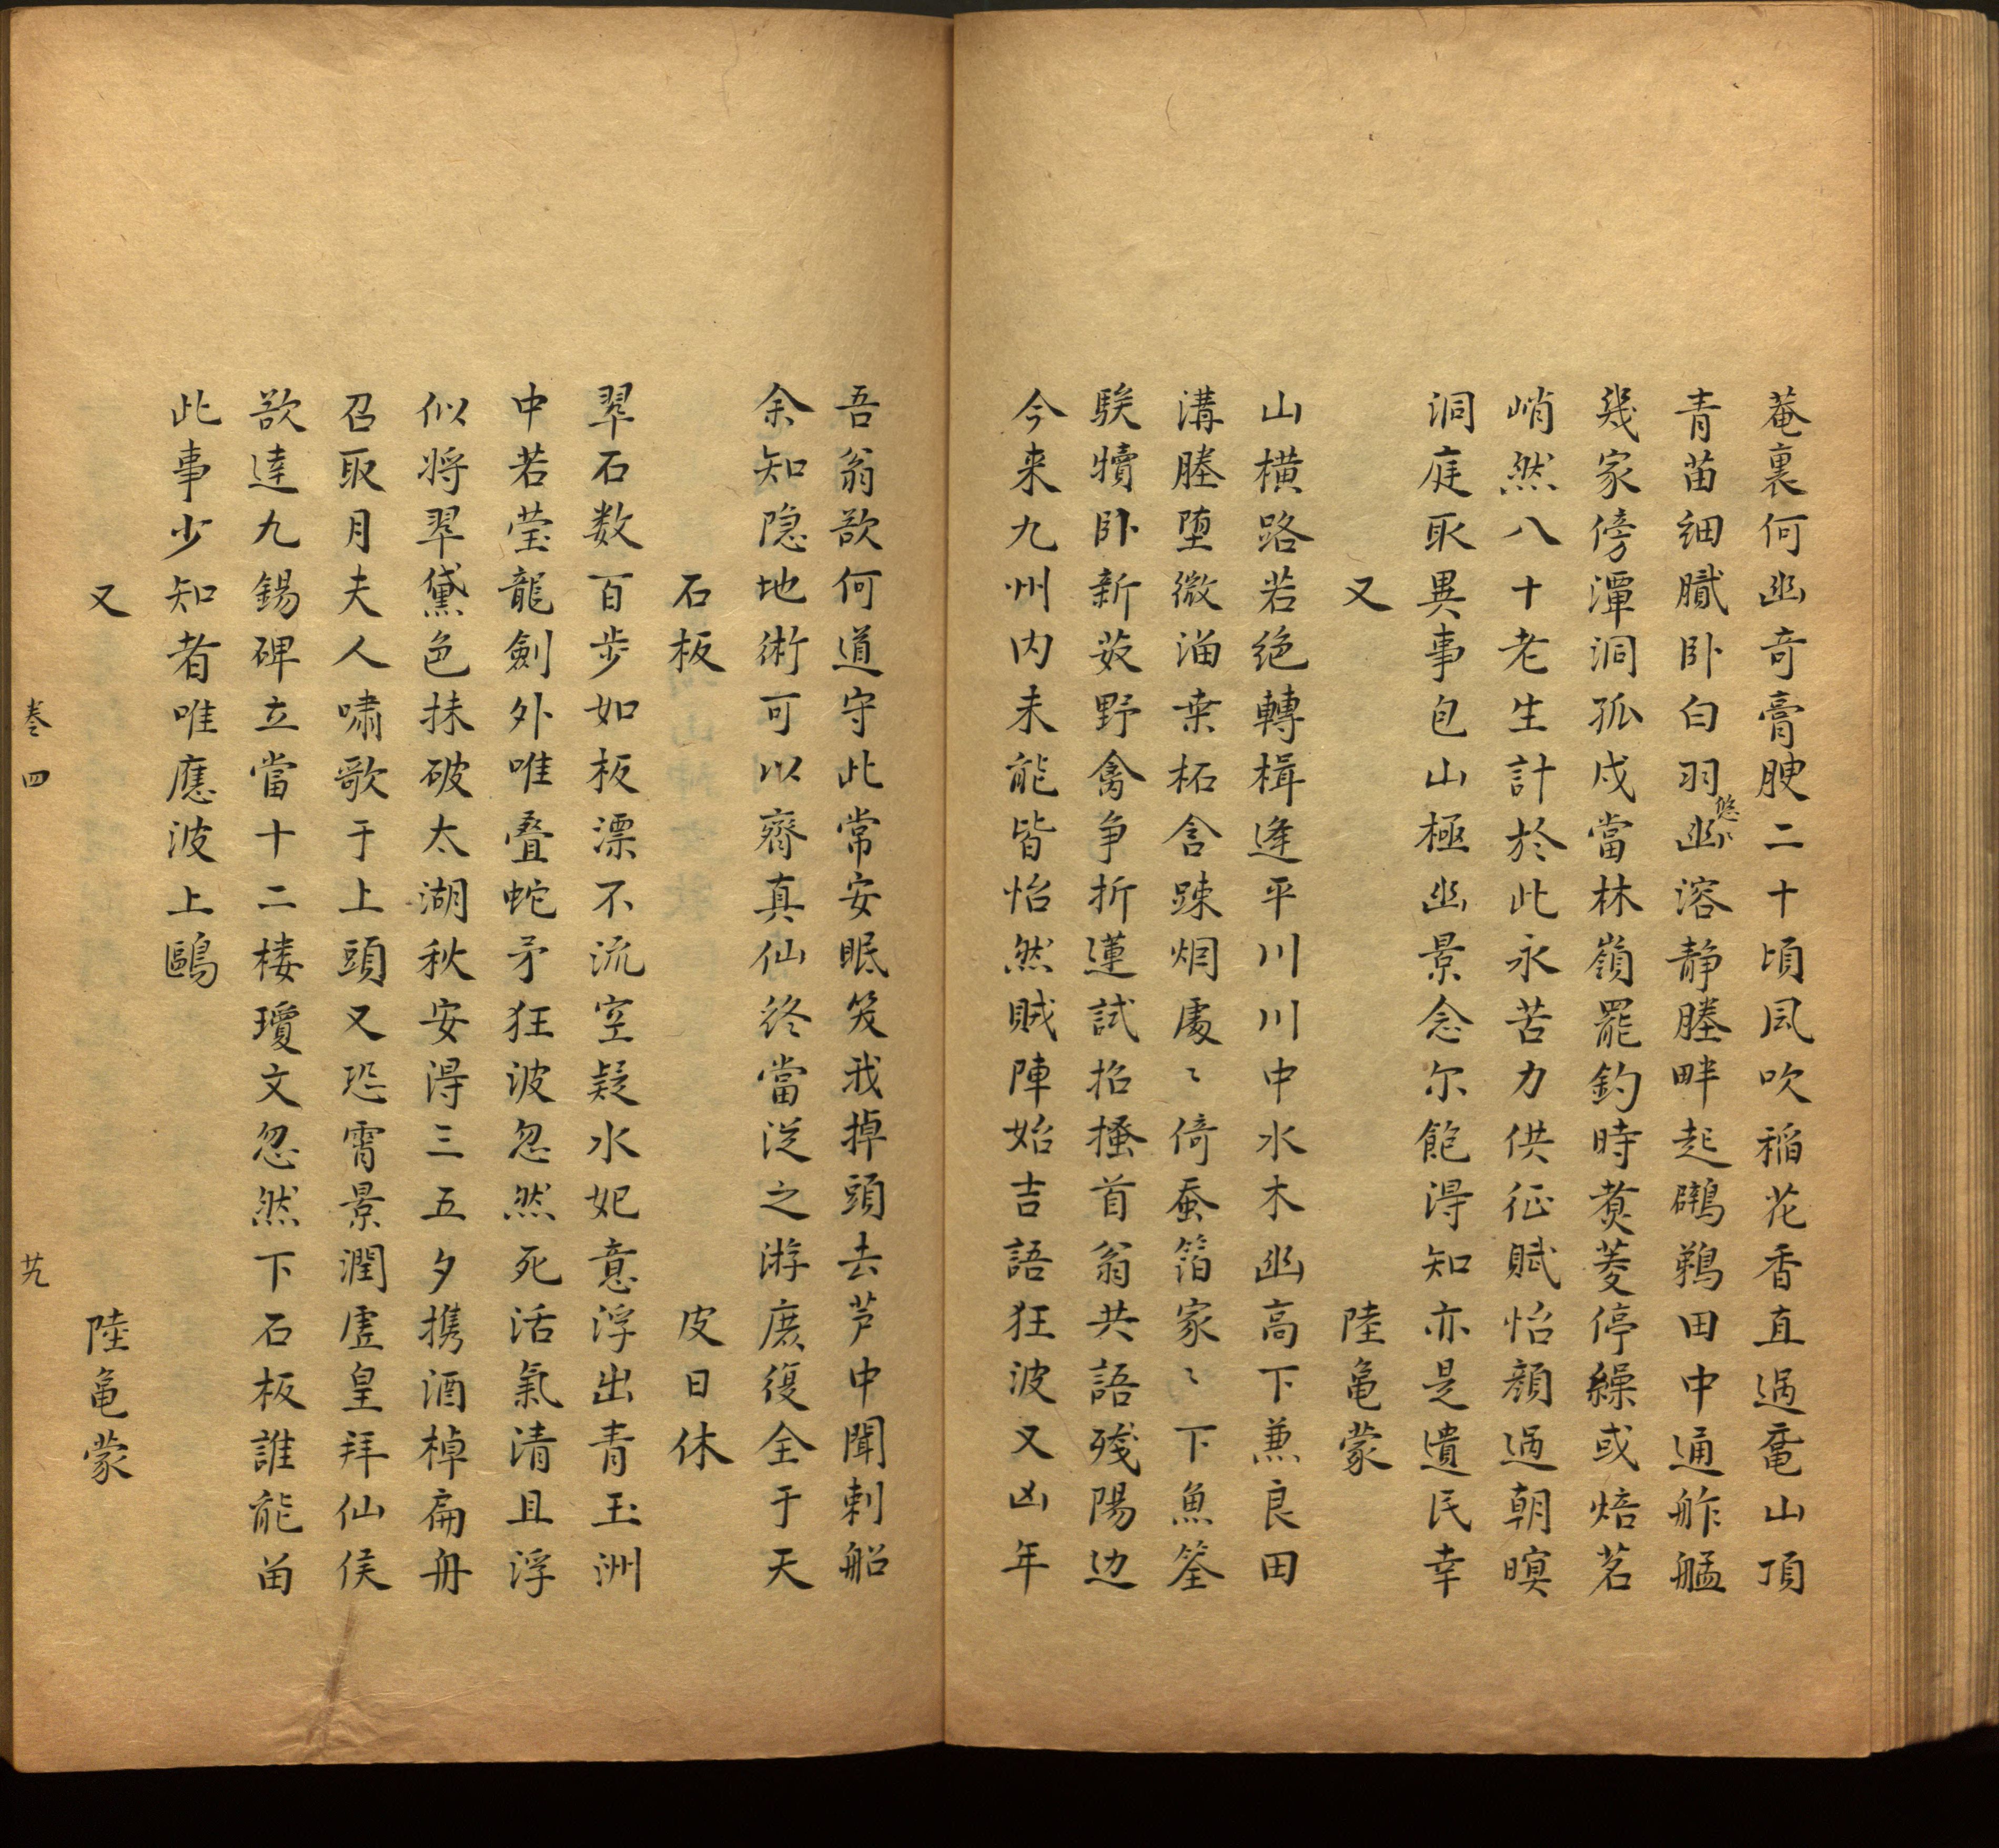 菴裏何幽奇膏腴二十頃風吹稲花香直過奄山頂
青苗細膩卧白羽幽溶静塍畔起鸊鵜田中通舴艋
悠下
幾家傍潭洞孤戍當林嶺罷釣時煑菱停繰或焙茗
峭然八十老生計於此永苦力供征賦怡顔過朝暝
洞庭取異事包山極幽景念尔飽淂知亦是遺民幸
又 陸龜蒙
山横路若絶轉楫逢平川川中水木幽高下兼良田
溝塍堕微溜桒柘含踈烟處〻倚蚕箔家〻下魚筌
騃犢卧新茭野禽争折蓮試招搔首翁共語殘陽边
今来九州内未能皆怡然賊陣始吉語狂波又凶年
吾翁欲何道守此常安眠笑我掉頭去芦中聞刺船
余知隐地術可以齊真仙终當泛之游庶復全于天
石板 皮日休
翠石数百步如板漂不流空疑水妃意浮出青玉洲
中若莹龍劍外唯叠蛇矛狂波忽然死活氣清且浮
似将翠黛色抹破太湖秋安淂三五夕携酒棹扁舟
召取月夫人嘯歌于上頭又恐霄景濶虚皇拜仙侯
欲達九錫碑立當十二楼瓊文忽然下石板誰能畄
此事少知者唯應波上鷗
又 陸龜蒙
卷四 廿九